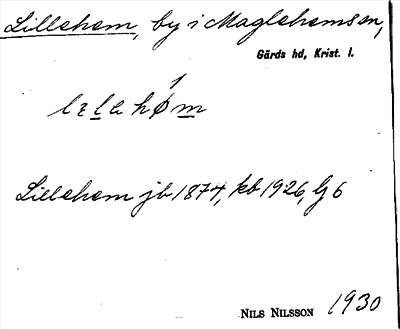 Lillehem, by i Maglehems sn,
Gärds hd, Krist. l.
Lillehem jb 1874, kb 1926, Gj 6
NILS NILSSON 1930